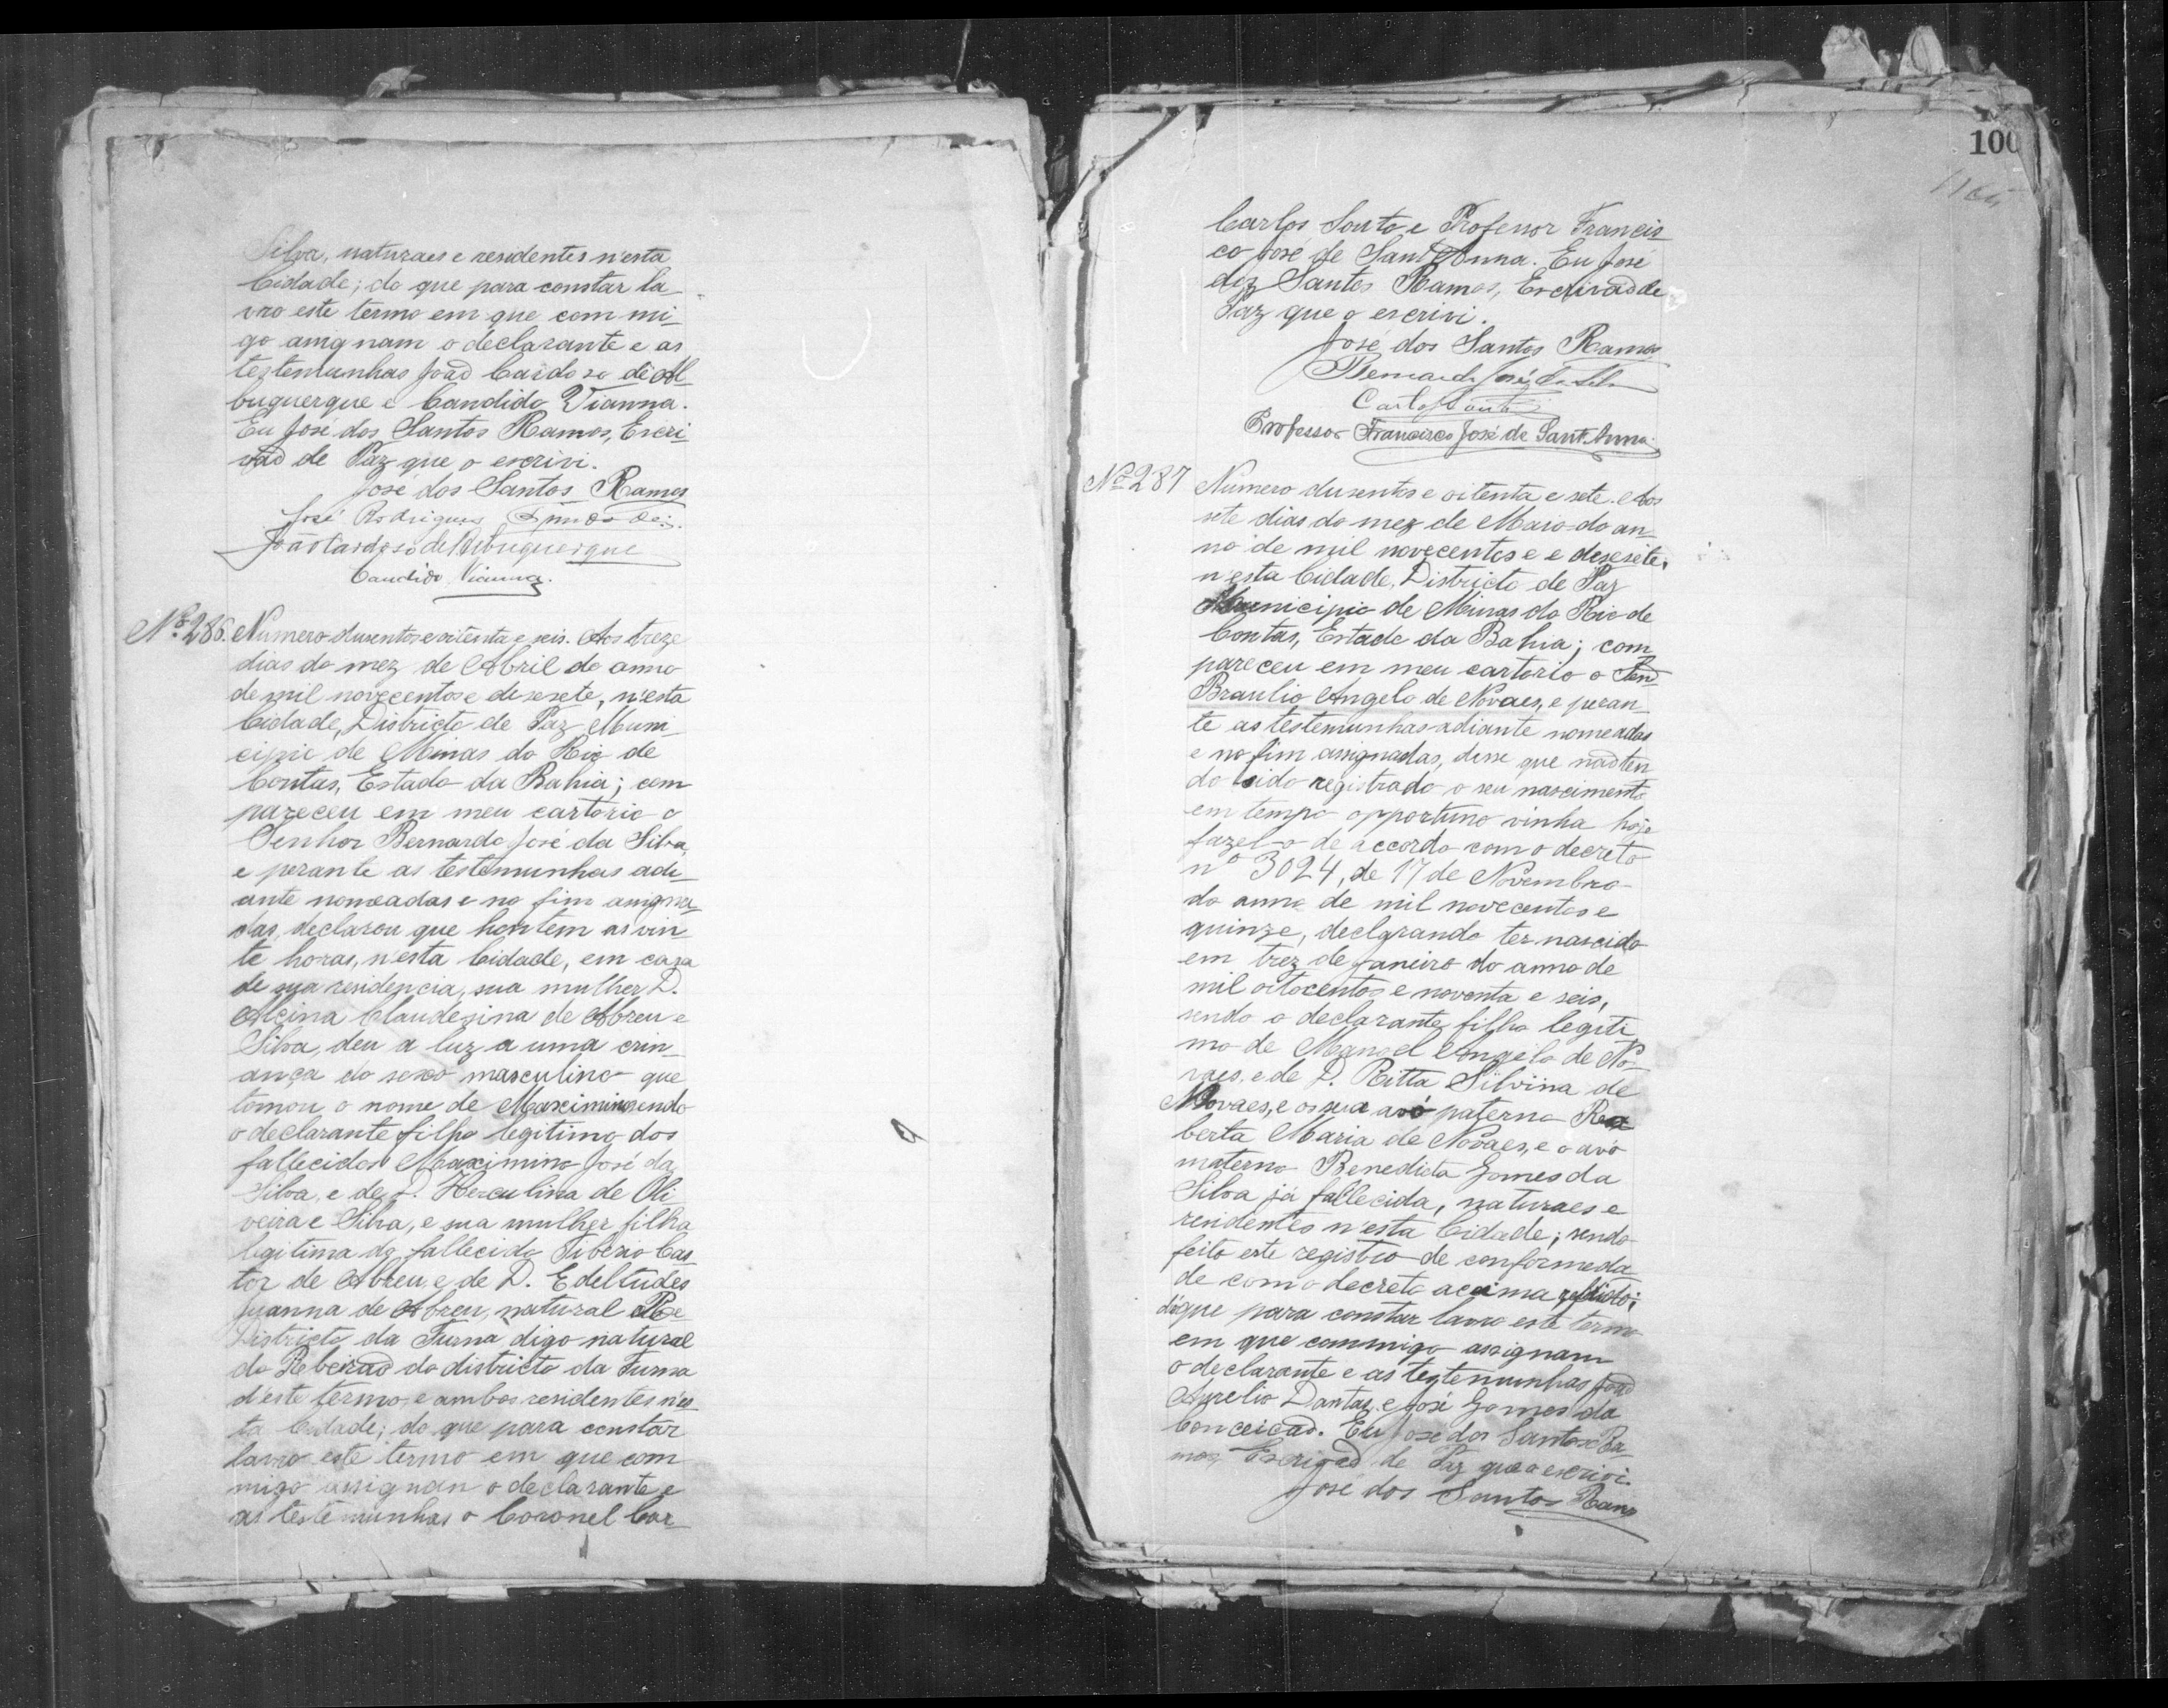 Silva, naturaes e residentes n'esta
Cidade; do que para constar la-
vro este termo em que com mi-
go assignam o declarante e as
testemunhas João Cardoso de Al-
buquerque e Candido Vianna.
Eu José dos Santos Ramos, Escri-
vão de Paz que o escrivi.
José dos Santos Ramos
José Rodrigues
João Cardoso de Albuquerque
Candido Vianna.
Nº 286. Numero dusentos e oitenta e seis. Aos treze
dias do mez de Abril do anno
de mil novecentos e desesete, n'esta
Cidade, Districto de Paz Muni-
cipio de Minas do Rio de
Contas, Estado da Bahia; com
pareceu em meu cartorio o
Senhor Bernardo José da Silva,
e perante as testemunhas adi-
ante nomeadas e no fim assigna-
das, declarou que hontem as vin-
te horas, n'esta Cidade, em casa
de sua residencia, sua mulher D.
Alcina Claudesina de Abreu e
Silva, deu a luz a uma crin-
ança do sexo masculino que
tomou o nome de Maximino sendo
o declarante filho legitimo dos
fallecidos Maximino José da
Silva, e de D. Herculina de Oli
veira e Silva, e sua mulher filha
legitima do fallecido Tiberio Cas
tor de Abreu, e de D. Edeltudes
Juanna de Abreu, natural
Districto da Furna digo natural
do Rebeirão do districto da Furna
d'este termo, e ambos residentes n'es
ta Cidade; do que para constar
lavro este termo em que com
migo assignan o declarante e
as testemunhas o Coronel Car-
100
Carlos Souto e Professor Francis-
co José de Sant'Anna. Eu José
dos Santos Ramos, Escrivão de
Paz que o escrivi.
José dos Santos Ramos
Bernardo José da Silva
Carlos Souto
Professor Francisco José de Sant'Anna.
Nº 287 Numero dusentos e oitenta e sete. Aos
sete dias do mez de Maio do an-
no de mil novecentos e e desesete,
n'esta Cidade, Districto de Paz
Municipio de Minas do Rio de
Contas, Estado da Bahia; com
pareceu em meu cartorio o
Braulio Angelo de Novaes, e peran-
te as testemunhas adiante nomeadas
e no fim assignadas, disse que não ten
do sido registrado o seu nascimento
em tempo opportuno vinha hoje
fazel-o de accordo com o decreto
nº 3024, de 17 de Novembro
do anno de mil novecentos e
quinze, declarando ter nascido
em trez de Janeiro do anno de
mil oitocentos e noventa e seis,
sendo o declarante filho legiti
mo de Manoel Angelo de No-
vaes, e de D. Ritta Silvina de
Novaes, e os sua avó paterna Ro
berta Maria de Novaes, e o avó
materno Benedicta Gomes da
Silva já fallecida, naturaes e
residentes n'esta Cidade; sendo
feito este registro de conformeda
de com o decreto acima
do que para constar lavro este termo
em que commigo assignam
o declarante e as testemunhas João
Aurelio Dantas e José Gomes da
Conceicão. Eu José dos Santos Ra-
mos, Escrivão de Paz que o escrivi.
José dos Santos Ramos